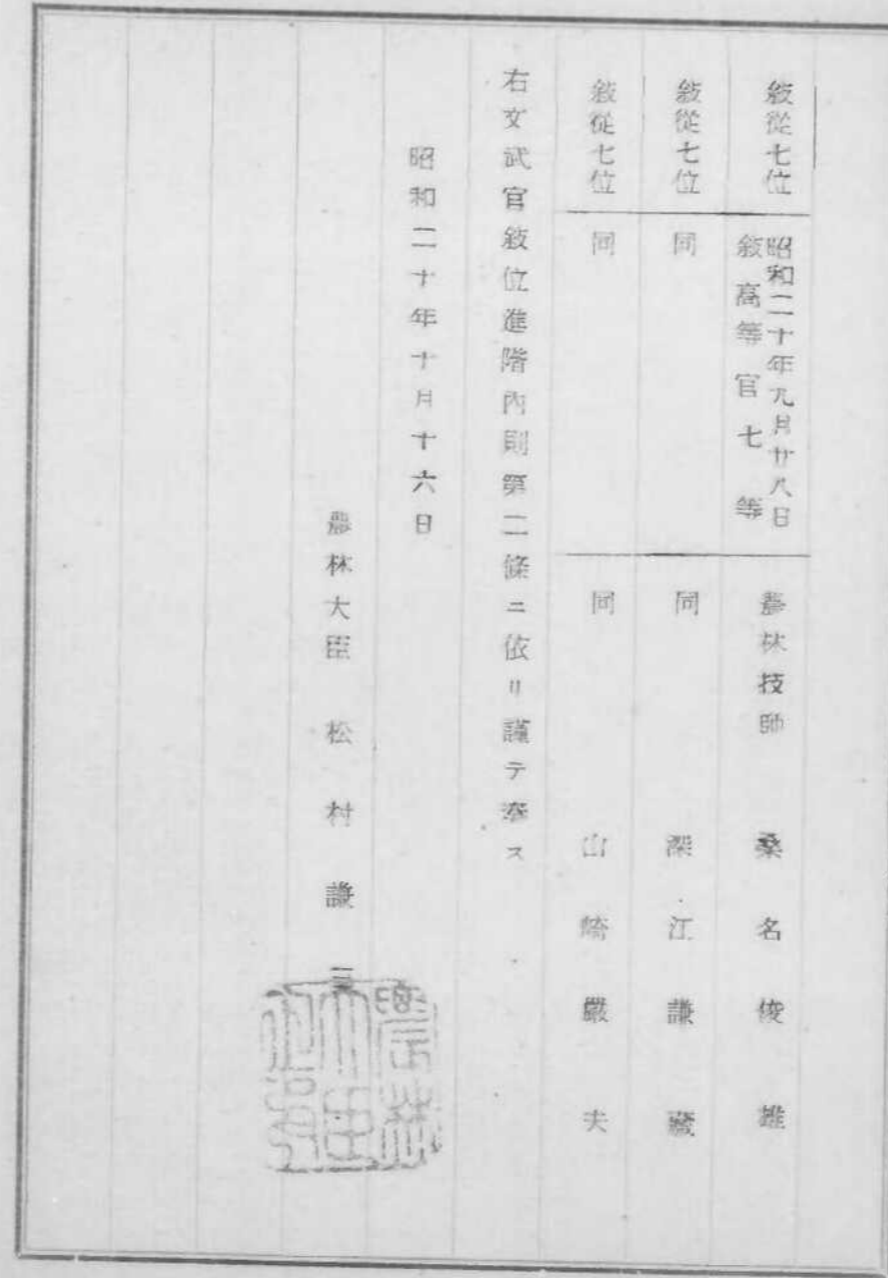 敍從七位 昭和二十年九月廿八日 敍高等官七等 農林技師 桑名俊雄
敍從七位 同 同 深江謙藏
敍從七位 同 同 山崎嚴夫
右文武官敍位進階內則第二條ニ依リ謹テ奏ス
昭和二十年十月十六日
農林大臣 松村謙三
農林
大臣
之印